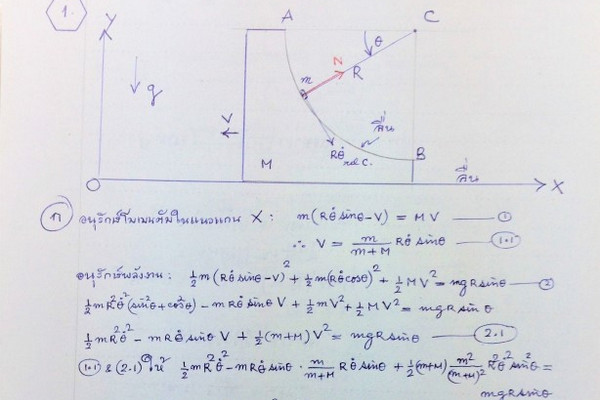 1.
Y
A
C
θ
N
g
m
R
V
ลื่น
Rθ̇
rel C.
B
M
ลื่น
O
X
ก อนุรักษ์โมเมนตัมในแนวแกน X: m(Rθ̇ sinθ - V) = MV —— ①
∴ V = m/(m+M) Rθ̇ sinθ —— 1.1
อนุรักษ์พลังงาน: ½m(Rθ̇ sinθ - V)² + ½m(Rθ̇ cosθ)² + ½MV² = mgR sinθ —— ②
½mR²θ̇²(sin²θ + cos²θ) - mRθ̇ sinθ V + ½mV² + ½MV² = mgR sinθ
½mR²θ̇² - mRθ̇ sinθ V + ½(m+M)V² = mgR sinθ —— 2.1
1.1 & (2.1) ให้ ½mR²θ̇² - mRθ̇ sinθ · m/(m+M) Rθ̇ sinθ + ½(m+M) m²/(m+M)² R²θ̇² sin²θ =
mgR sinθ